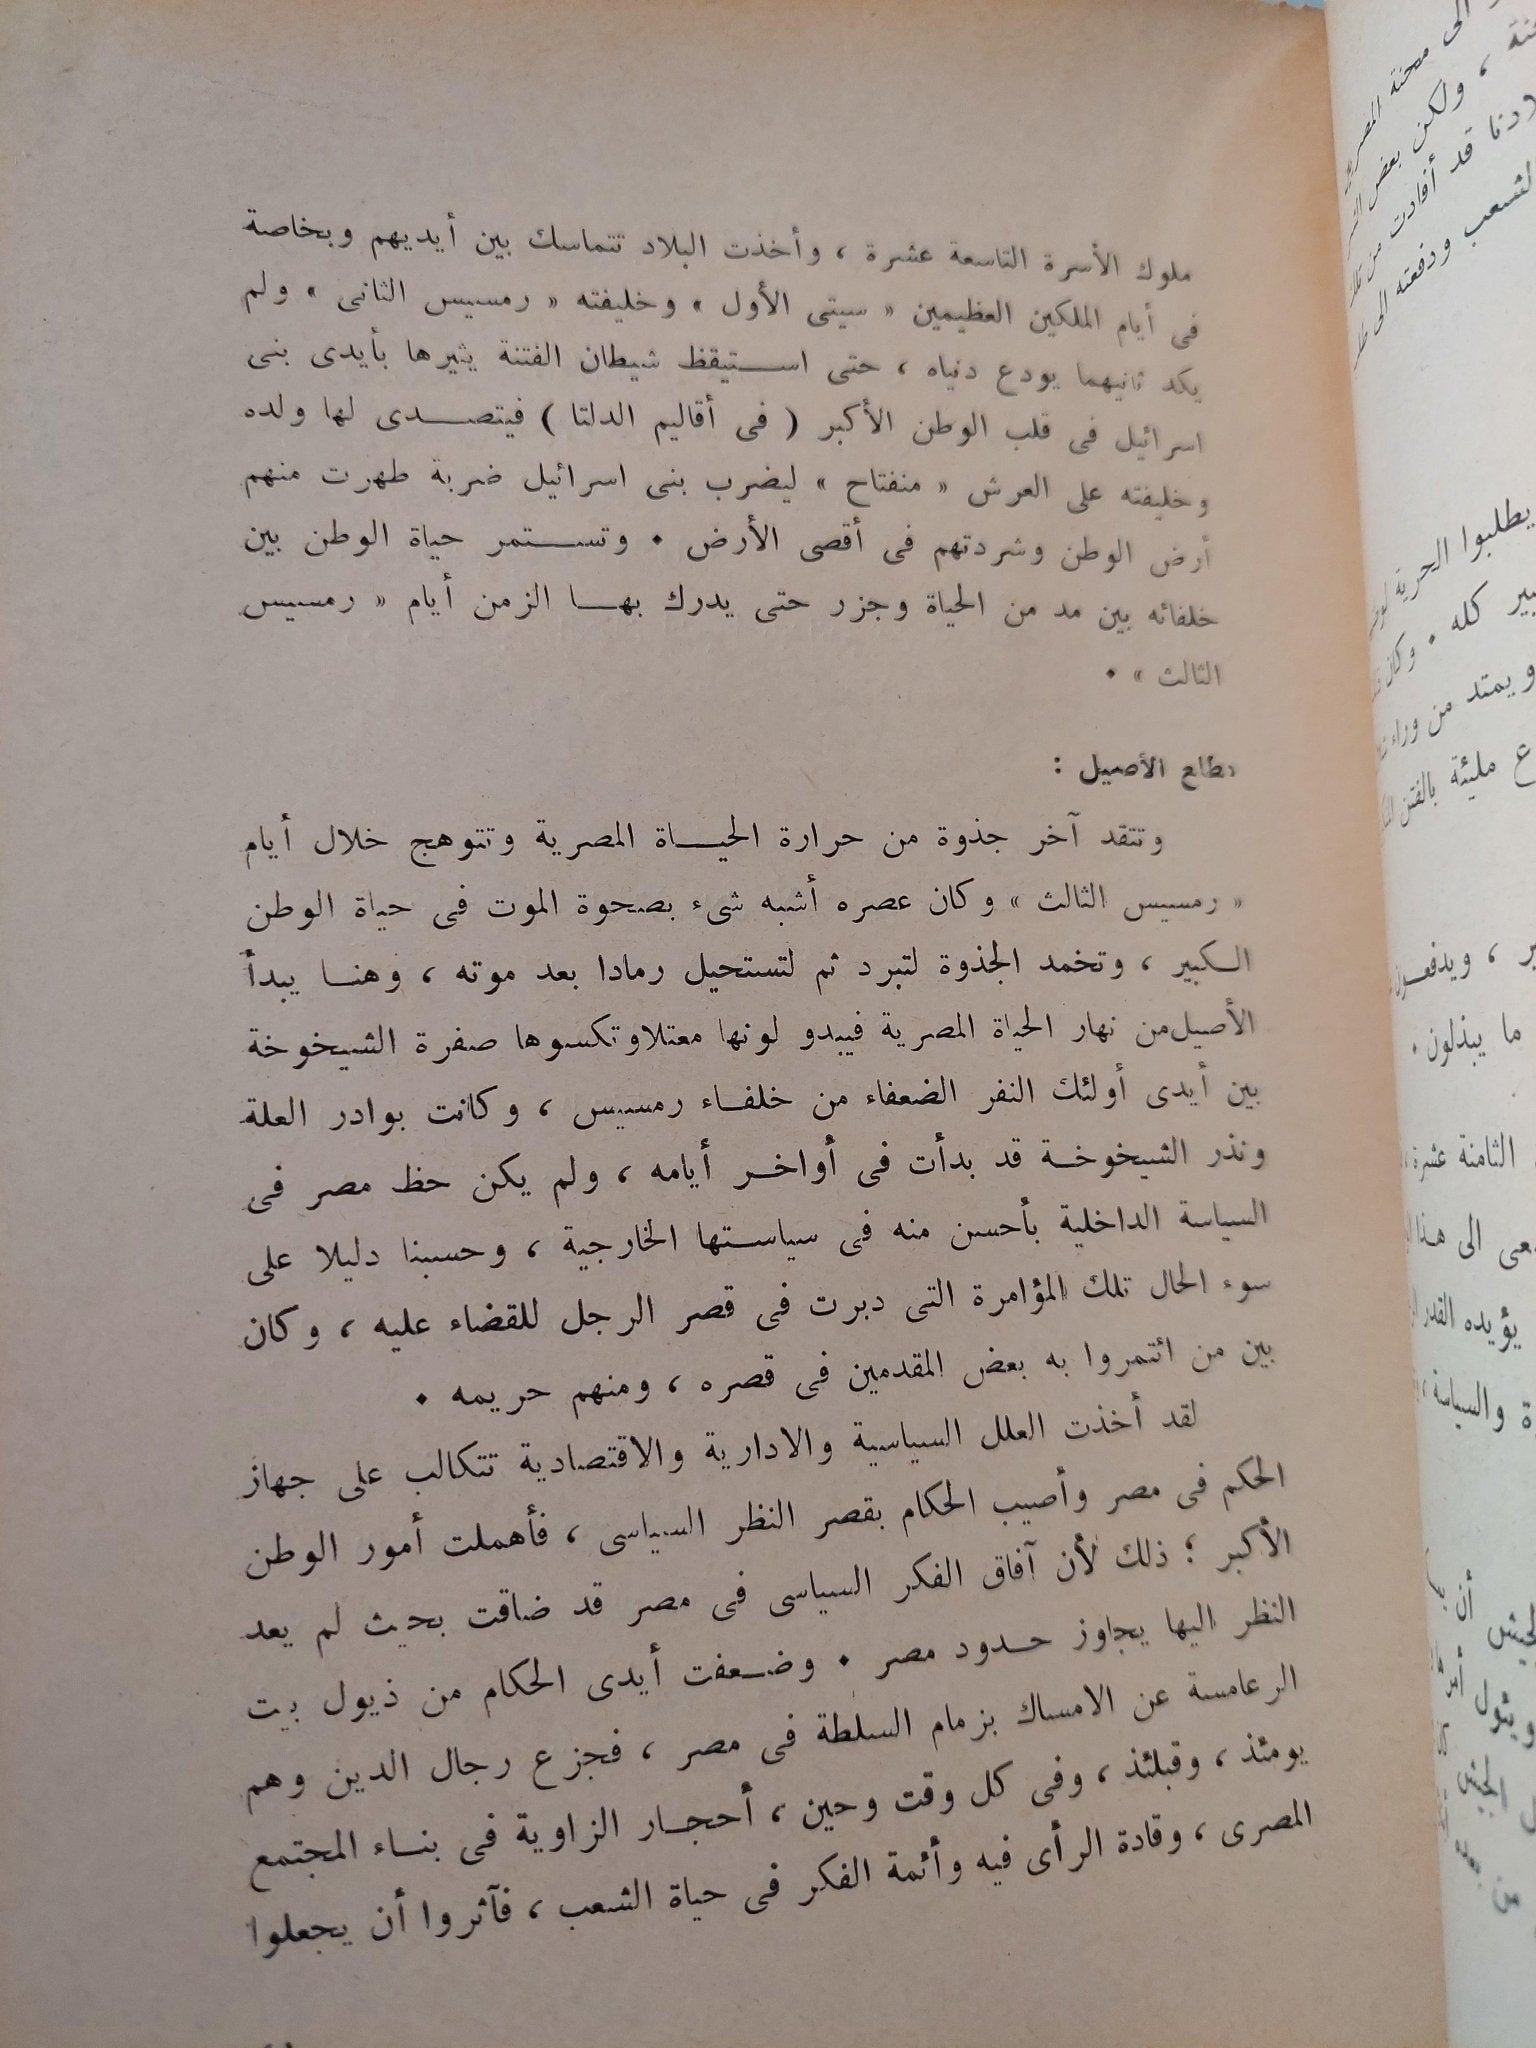 ملوك الأسرة التاسعة عشرة ، وأخذت البلاد تتماسك بين أيديهم وبخاصة
فى أيام الملكين العظيمين « سيتى الأول » وخليفته « رمسيس الثانى » ولم
يكد ثانيهما يودع دنياه ، حتى استيقظ شيطان الفتنة يثيرها بأيدى بنى
اسرائيل فى قلب الوطن الأكبر ( فى أقاليم الدلتا ) فيتصدى لها ولده
وخليفته على العرش « منفتاح » ليضرب بنى اسرائيل ضربة طهرت منهم
أرض الوطن وشردتهم فى أقصى الأرض . وتستمر حياة الوطن بين
خلفائه بين مد من الحياة وجزر حتى يدرك بها الزمن أيام « رمسيس
الثالث » .
الأصيل :
وتتقد آخر جذوة من حرارة الحياة المصرية وتتوهج خلال أيام
« رمسيس الثالث » وكان عصره أشبه شىء بصحوة الموت فى حياة الوطن
الكبير ، وتخمد الجذوة لتبرد ثم لتستحيل رمادا بعد موته ، وهنا يبدأ
الأصيل من نهار الحياة المصرية فيبدو لونها معتلا وتكسوها صفرة الشيخوخة
بين أيدى أولئك النفر الضعفاء من خلفاء رمسيس ، وكانت بوادر العلة
ونذر الشيخوخة قد بدأت فى أواخر أيامه ، ولم يكن حظ مصر فى
السياسة الداخلية بأحسن منه فى سياستها الخارجية ، وحسبنا دليلا على
سوء الحال تلك المؤامرة التى دبرت فى قصر الرجل للقضاء عليه ، وكان
بين من ائتمروا به بعض المقدمين فى قصره ، ومنهم حريمه .
لقد أخذت العلل السياسية والادارية والاقتصادية تتكالب على جهاز
الحكم فى مصر وأصيب الحكام بقصر النظر السياسى ، فأهملت أمور الوطن
الأكبر ؛ ذلك لأن آفاق الفكر السياسى فى مصر قد ضاقت بحيث لم يعد
النظر اليها يجاوز حدود مصر . وضعفت أيدى الحكام من ذيول بيت
الرعامسة عن الامساك بزمام السلطة فى مصر ، فجزع رجال الدين وهم
يومئذ ، وقبلئذ ، وفى كل وقت وحين ، أحجار الزاوية فى بناء المجتمع
المصرى ، وقادة الرأى فيه وأئمة الفكر فى حياة الشعب ، فآثروا أن يجعلوا
الى محنة
، ولكن بعض
قد أفادت من
ودفعته الى
يطلبوا الحرية
كله . وكان
ويمتد من وراء
مليئة بالفتن
، ويدفعون
ما يبذلون .
الثامنة عشرة
الى هذا
يؤيده القدر
والسياسة ،
أن